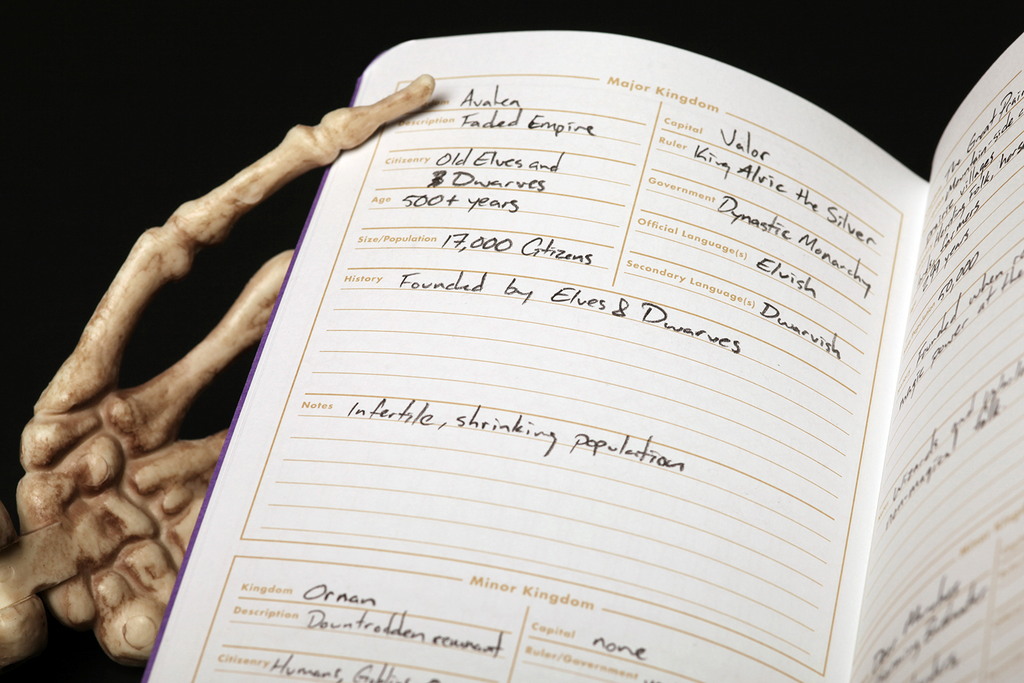 Major Kingdom
Avalen
Description Faded Empire
Citizenry Old Elves and
& Dwarves
Age 500+ years
Size/Population 17,000 Citizens
Capital Valor
Ruler King Alric the Silver
Government Dynastic Monarchy
Official Language(s) Elvish
Secondary Language(s) Dwarvish
History Founded by Elves & Dwarves
Notes Infertile, shrinking population
Minor Kingdom
Kingdom Ornan
Description Downtrodden remnant
Citizenry Humans, Goblins
Capital none
Ruler/Government
The Great
Mountain-side
villages
folk
farmers
years
50,000
Founded when
magic power at the
Wizards and
non-magical folk